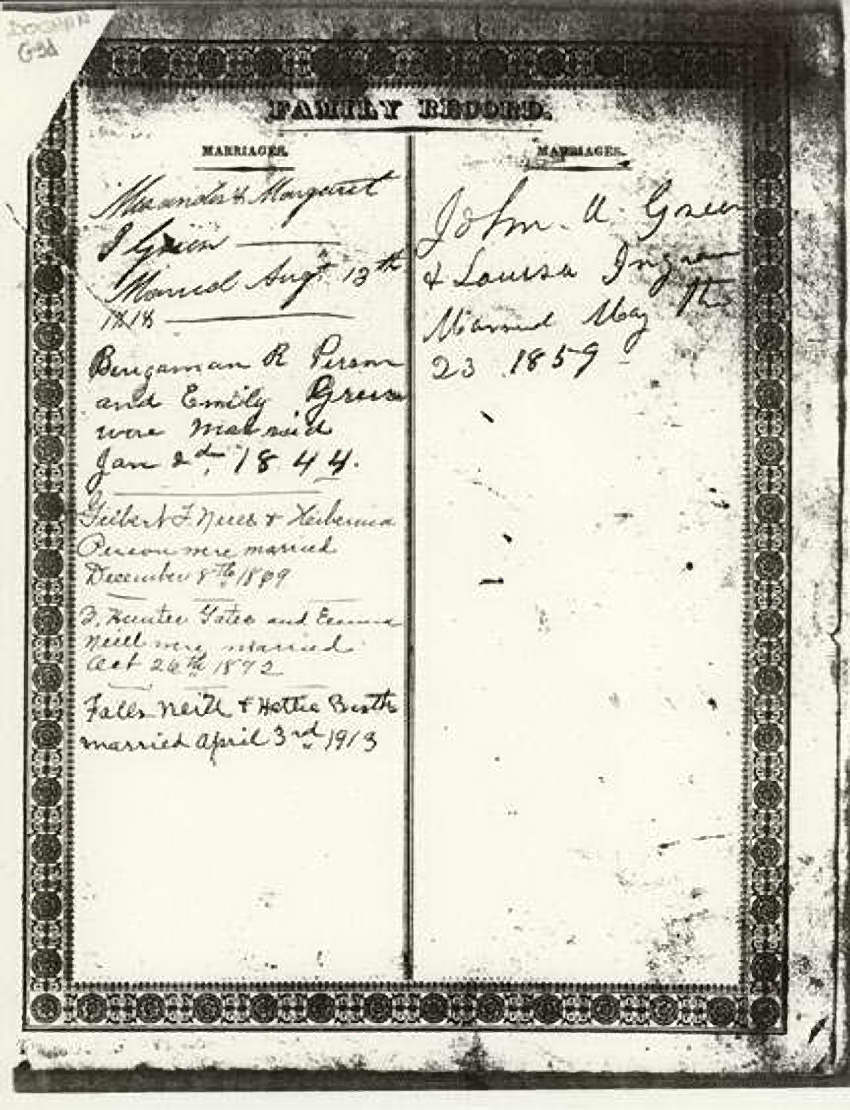 G3d
FAMILY RECORD.
MARRIAGES.
Alexander & Margaret
J Green
Married Augt. 13th
1818
Bengaman R Person
and Emily Green
were Married
Jan 2d, 1844.
Gilbert F. Neill &
Person were married
December 8th
F. Hunter Yates and Emma
Neill were married
Oct 26th 1892
Falls Neill & Hettie
married April 3rd 1913
MARRIAGES.
John U Green
& Louisa Ingram
Married May the
23 1859